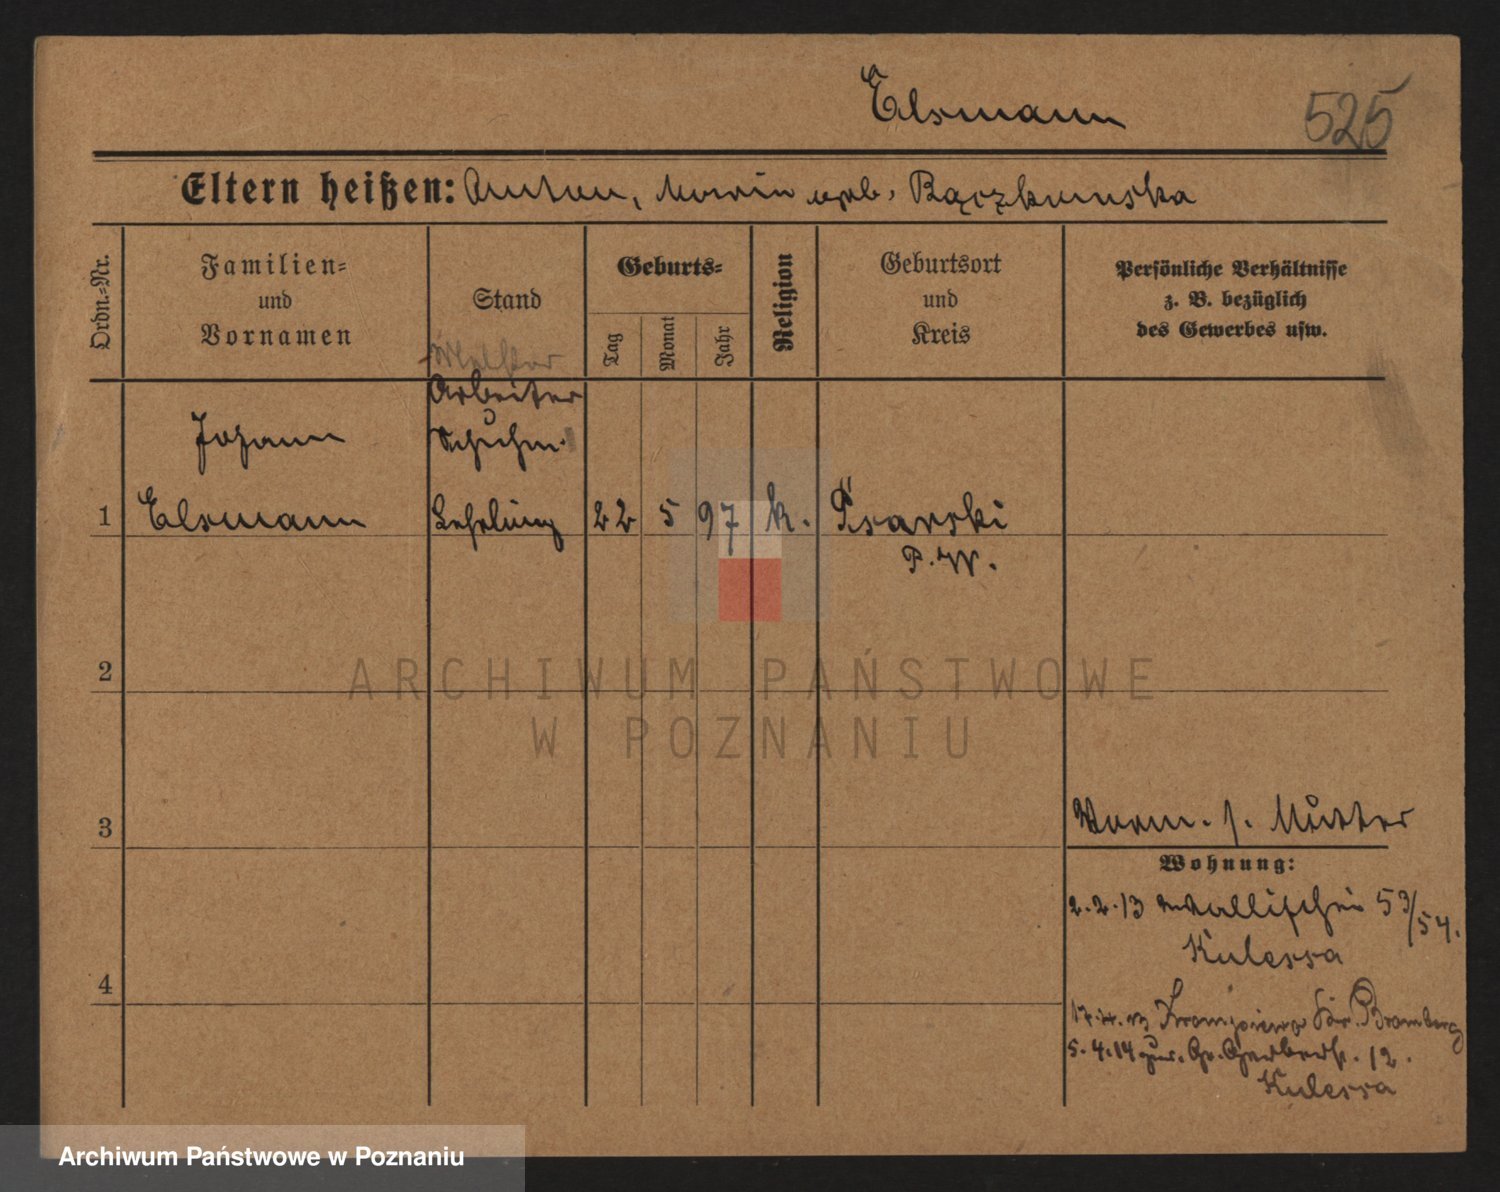 Elsmann 525
Eltern heißen: Anton, Maria geb. Bączkowska
Ordn.-Nr.
Familien-
und
Vornamen
Stand
Geburts-
Tag
Monat
Jahr
Religion
Geburtsort
und
Kreis
Persönliche Verhältnisse
z. B. bezüglich
des Gewerbes usw.
Arbeiter
Johann Schuhm.
1 Elsmann Lehrling 22 5 97 k. Psarski
P. W.
2
3
4
Vorm. s. Mutter
Wohnung:
2.2.13 Wallischei 53/54.
Kulessa
Bromberg
5.4.14 zur. Gr. Gerberstr. 12.
Kulessa
ARCHIWUM PAŃSTWOWE
W POZNANIU
Archiwum Państwowe w Poznaniu